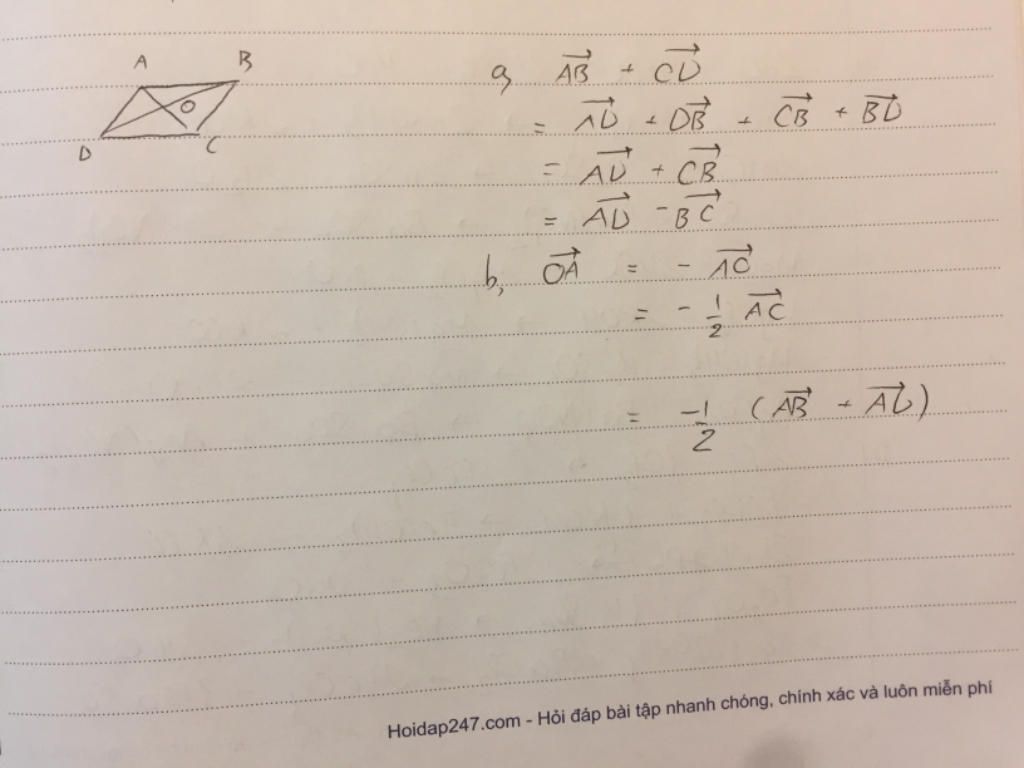 A B
O
D C
a, $\overrightarrow{AB} + \overrightarrow{CD}$
$= \overrightarrow{AD} + \overrightarrow{DB} + \overrightarrow{CB} + \overrightarrow{BD}$
$= \overrightarrow{AD} + \overrightarrow{CB}$
$= \overrightarrow{AD} - \overrightarrow{BC}$
b, $\overrightarrow{OA} = - \overrightarrow{AO}$
$= - \frac{1}{2} \overrightarrow{AC}$
$= \frac{-1}{2} (\overrightarrow{AB} + \overrightarrow{AD})$
Hoidap247.com - Hỏi đáp bài tập nhanh chóng, chính xác và luôn miễn phí